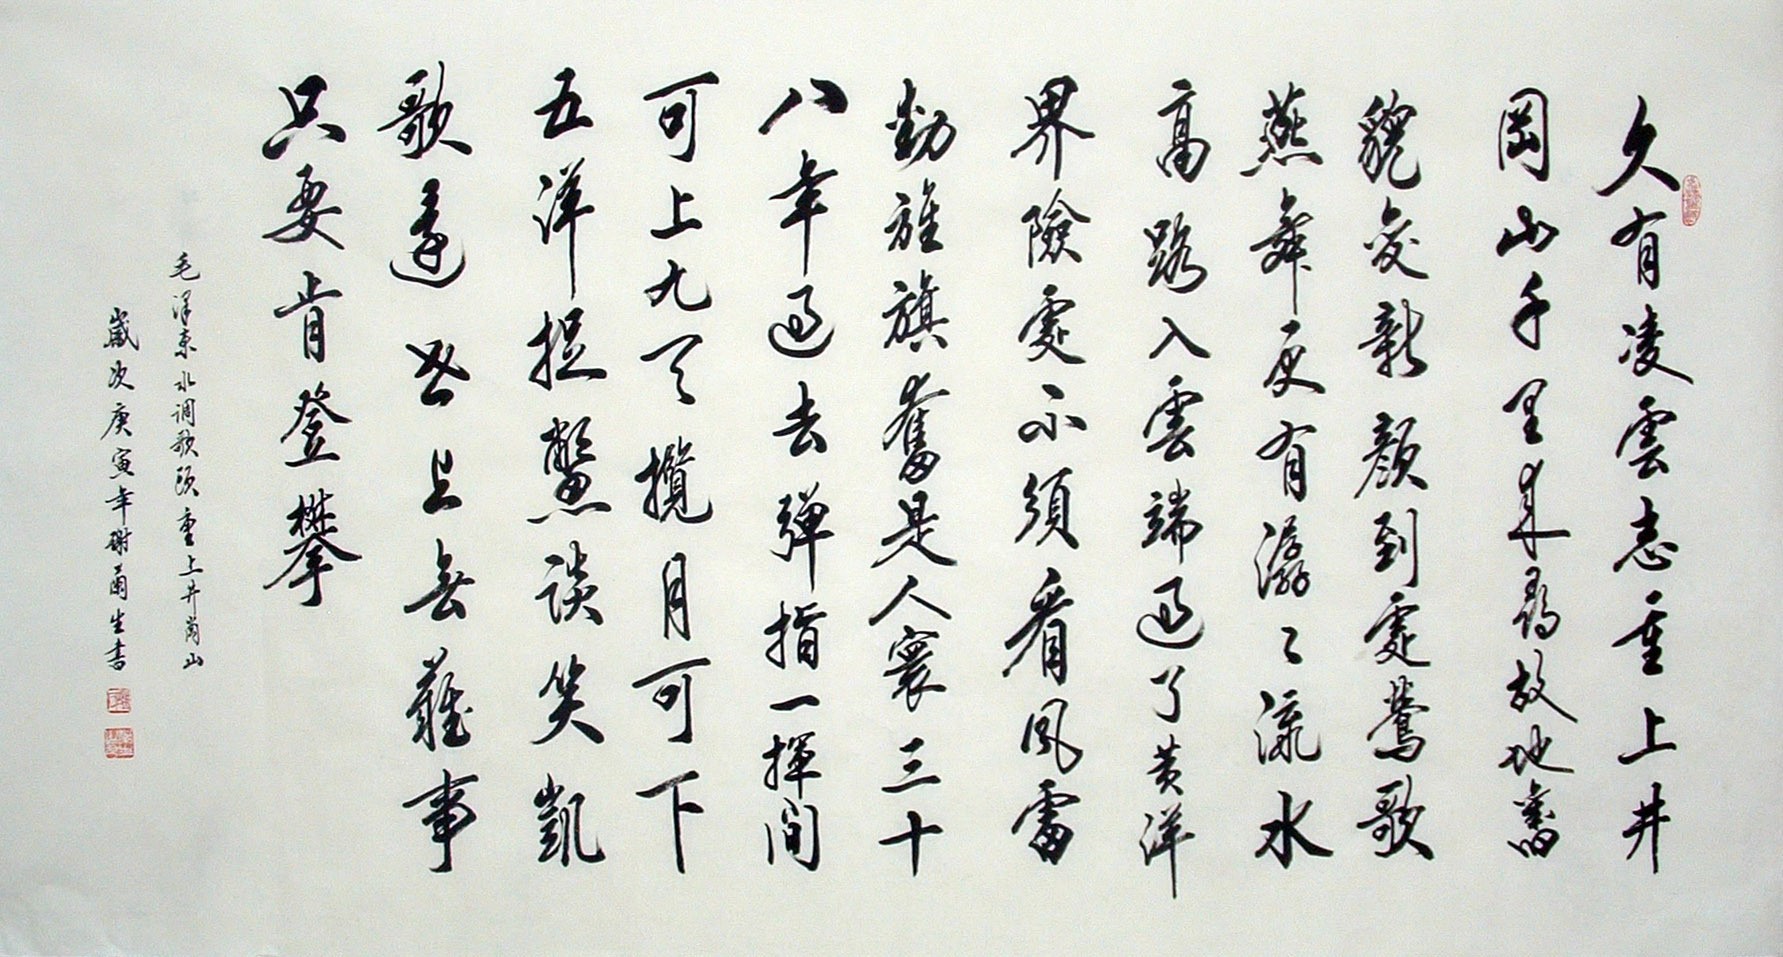 久有凌雲志重上井
岡山千里來尋故地舊
貌變新顏到處鶯歌
燕舞更有潺〻流水
高路入雲端過了黃洋
界險處不須看風雷
動旌旗奮是人寰三十
八年過去彈指一揮間
可上九天攬月可下
五洋捉鱉談笑凱
歌還世上無難事
只要肯登攀
毛澤東水调歌頭重上井崗山
歲次庚寅年謝生書